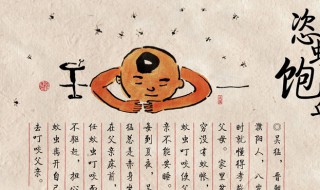 恣蚊饱
吴猛，晋朝
濮阳人，八岁
时就懂得孝敬
父母。家里贫
穷没有蚊帐，
蚊虫叮咬使父
亲不能安睡。
每到夏夜，吴
猛总是赤身坐
在父亲床前，
任蚊虫叮咬而
不驱赶，担心
蚊虫离开自己
去叮咬父亲。